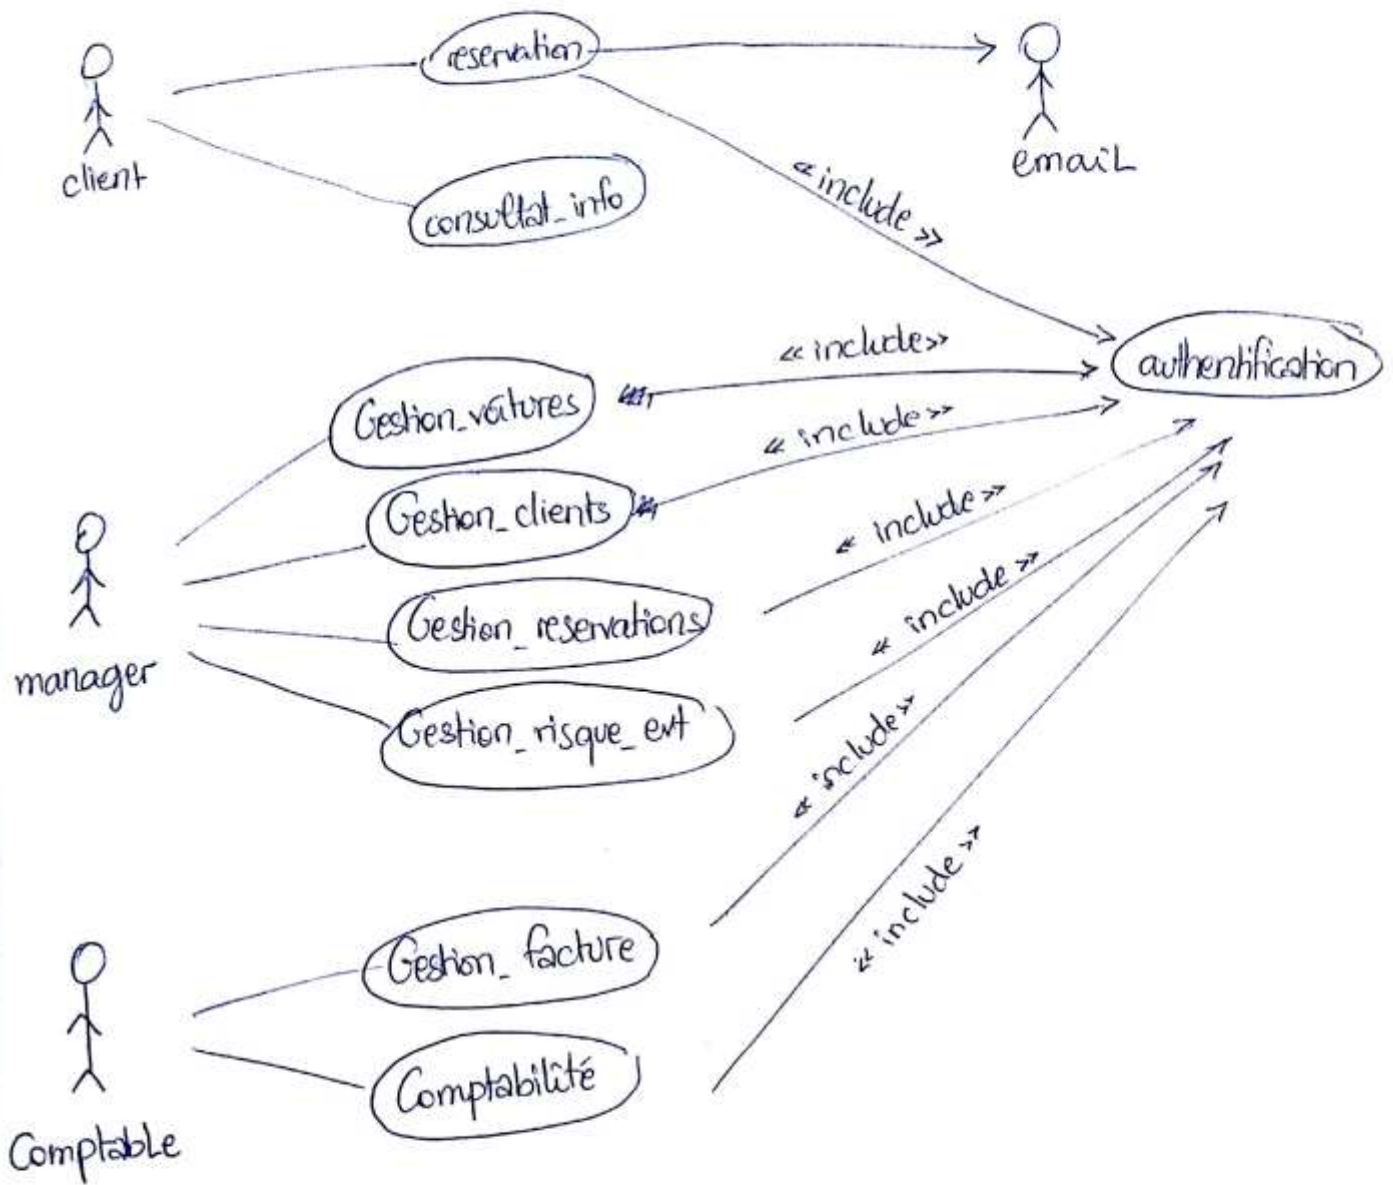 reservation
client
email
consultat_info
« include »
« include »
authentification
Gestion_voitures
« include »
Gestion_clients
« include »
Gestion_reservations
« include »
manager
Gestion_risque_evt
« include »
« include »
Gestion_facture
Comptabilité
Comptable